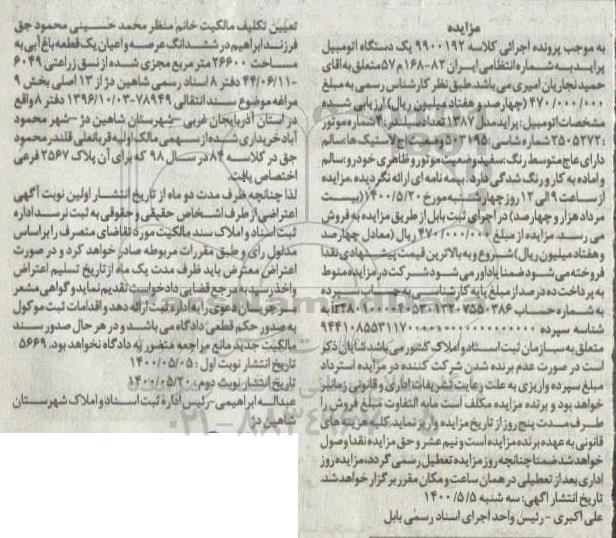 مزایده
به موجب پرونده اجرائی کلاسه ۹۹۰۰۱۹۲ یک دستگاه اتومبیل
پراید به شماره انتظامی ایران ۸۲-۱۶۸ م ۵۷ متعلق به آقای
حمید نجاریان امیری می باشد. طبق نظر کارشناس رسمی به مبلغ
۴۷۰/۰۰۰/۰۰۰ (چهارصد و هفتاد میلیون ریال) ارزیابی شده
مشخصات اتومبیل: پراید مدل ۱۳۸۷ تعداد سیلندر: ۴ شماره موتور
:۲۵۰۵۲۷۲ شماره شاسی: ۵۰۳۱۹۵ وضعیت آج لاستیک ها: سالم
دارای عاج متوسط رنگ: سفید وضعیت موتور و ظاهری خودرو: سالم
و آماده به کار و رنگ شدگی دارد. بیمه نامه ای ارائه نگردیده. مزایده
از ساعت ۹ الی ۱۲ روز چهارشنبه مورخ ۱۴۰۰/۵/۲۰ (بیست
مرداد هزار و چهارصد) در اجرای ثبت بابل از طریق مزایده به فروش
می رسد. مزایده از مبلغ ۴۷۰/۰۰۰/۰۰۰ ریال (معادل چهارصد
و هفتاد میلیون ریال) شروع و به بالاترین قیمت پیشنهادی نقدا
فروخته می شود ضمنا یادآور می شود شرکت در مزایده منوط
به پرداخت ده درصد از مبلغ پایه کارشناسی به حساب سپرده
به شماره حساب
شناسه سپرده
متعلق به سازمان ثبت اسناد و املاک کشور می باشد شایان ذکر
است در صورت عدم برنده شدن شرکت کننده در مزایده استرداد
مبلغ سپرده واریزی به علت رعایت تشریفات اداری و قانونی زمانبر
خواهد بود و برنده مزایده مکلف است مابه التفاوت مبلغ فروش را
ظرف مدت پنج روز از تاریخ مزایده واریز نماید. کلیه هزینه های
قانونی به عهده برنده مزایده است و نیم عشر و حق مزایده نقدا وصول
خواهد شد ضمنا چنانچه روز مزایده تعطیل رسمی گردد، مزایده روز
اداری بعد از تعطیلی در همان ساعت و مکان مقرر برگزار خواهد شد.
تاریخ انتشار آگهی: سه شنبه ۱۴۰۰/۵/۵
علی اکبری - رئیس واحد اجرای اسناد رسمی بابل
تعیین تکلیف مالکیت خانم منظر محمد حسینی محمود جق
فرزند ابراهیم در ششدانگ عرصه و اعیان یک قطعه باغ آبی به
مساحت ۲۶۶۰۰ متر مربع مجزی شده از نسق زراعتی ۶۰۴۹
-۴۴/۰۶/۱۱ دفتر ۸ اسناد رسمی شاهین دژ از ۱۳ اصلی بخش ۹
مراغه موضوع سند انتقالی ۷۸۹۴۹-۱۳۹۶/۱۰/۰۳ دفتر ۸ واقع
در استان آذربایجان غربی - شهرستان شاهین دژ - شهر محمود
آباد خریداری شده از سهمی مالک اولیه قربانعلی قلندر محمود
جق در کلاسه ۸۴ در سال ۹۸ که برای آن پلاک ۲۵۶۷ فرعی
اختصاص یافت.
لذا چنانچه ظرف مدت دو ماه از تاریخ انتشار اولین نوبت آگهی
اعتراضی از طرف اشخاص حقیقی و حقوقی به ثبت نرسد اداره
ثبت اسناد و املاک سند مالکیت مورد تقاضای متصرف را بر اساس
مدلول رای و طبق مقررات مربوطه صادر خواهد کرد و در صورت
اعتراض معترض باید ظرف مدت یک ماه از تاریخ تسلیم اعتراض
و اخذ رسید به مرجع قضایی دادخواست تقدیم نماید و گواهی مشعر
بر جریان دعوی را به اداره ثبت ارائه دهد و اقدامات ثبت موکول
به صدور حکم قطعی دادگاه می باشد و در هر حال صدور سند
مالکیت جدید مانع مراجعه متضرر به دادگاه نخواهد بود. ۵۶۶۹
تاریخ انتشار نوبت اول: ۱۴۰۰/۰۵/۰۵
تاریخ انتشار نوبت دوم: ۱۴۰۰/۰۵/۲۰
عبداله ابراهیمی - رئیس اداره ثبت اسناد و املاک شهرستان
شاهین دژ